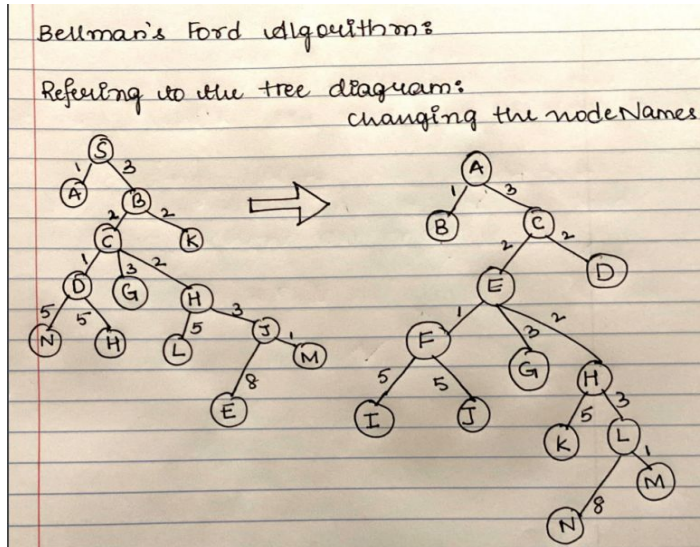 Bellman's Ford Algorithm:
Refering to the tree diagram:
changing the node Names
S
1 3
A B
2 2
C K
1 3 2
D G H
5 5 5 3
N H L J
8 1
E M
A
1 3
B C
2 2
E D
1 3 2
F G H
5 5 5 3
I J K L
8 1
N M